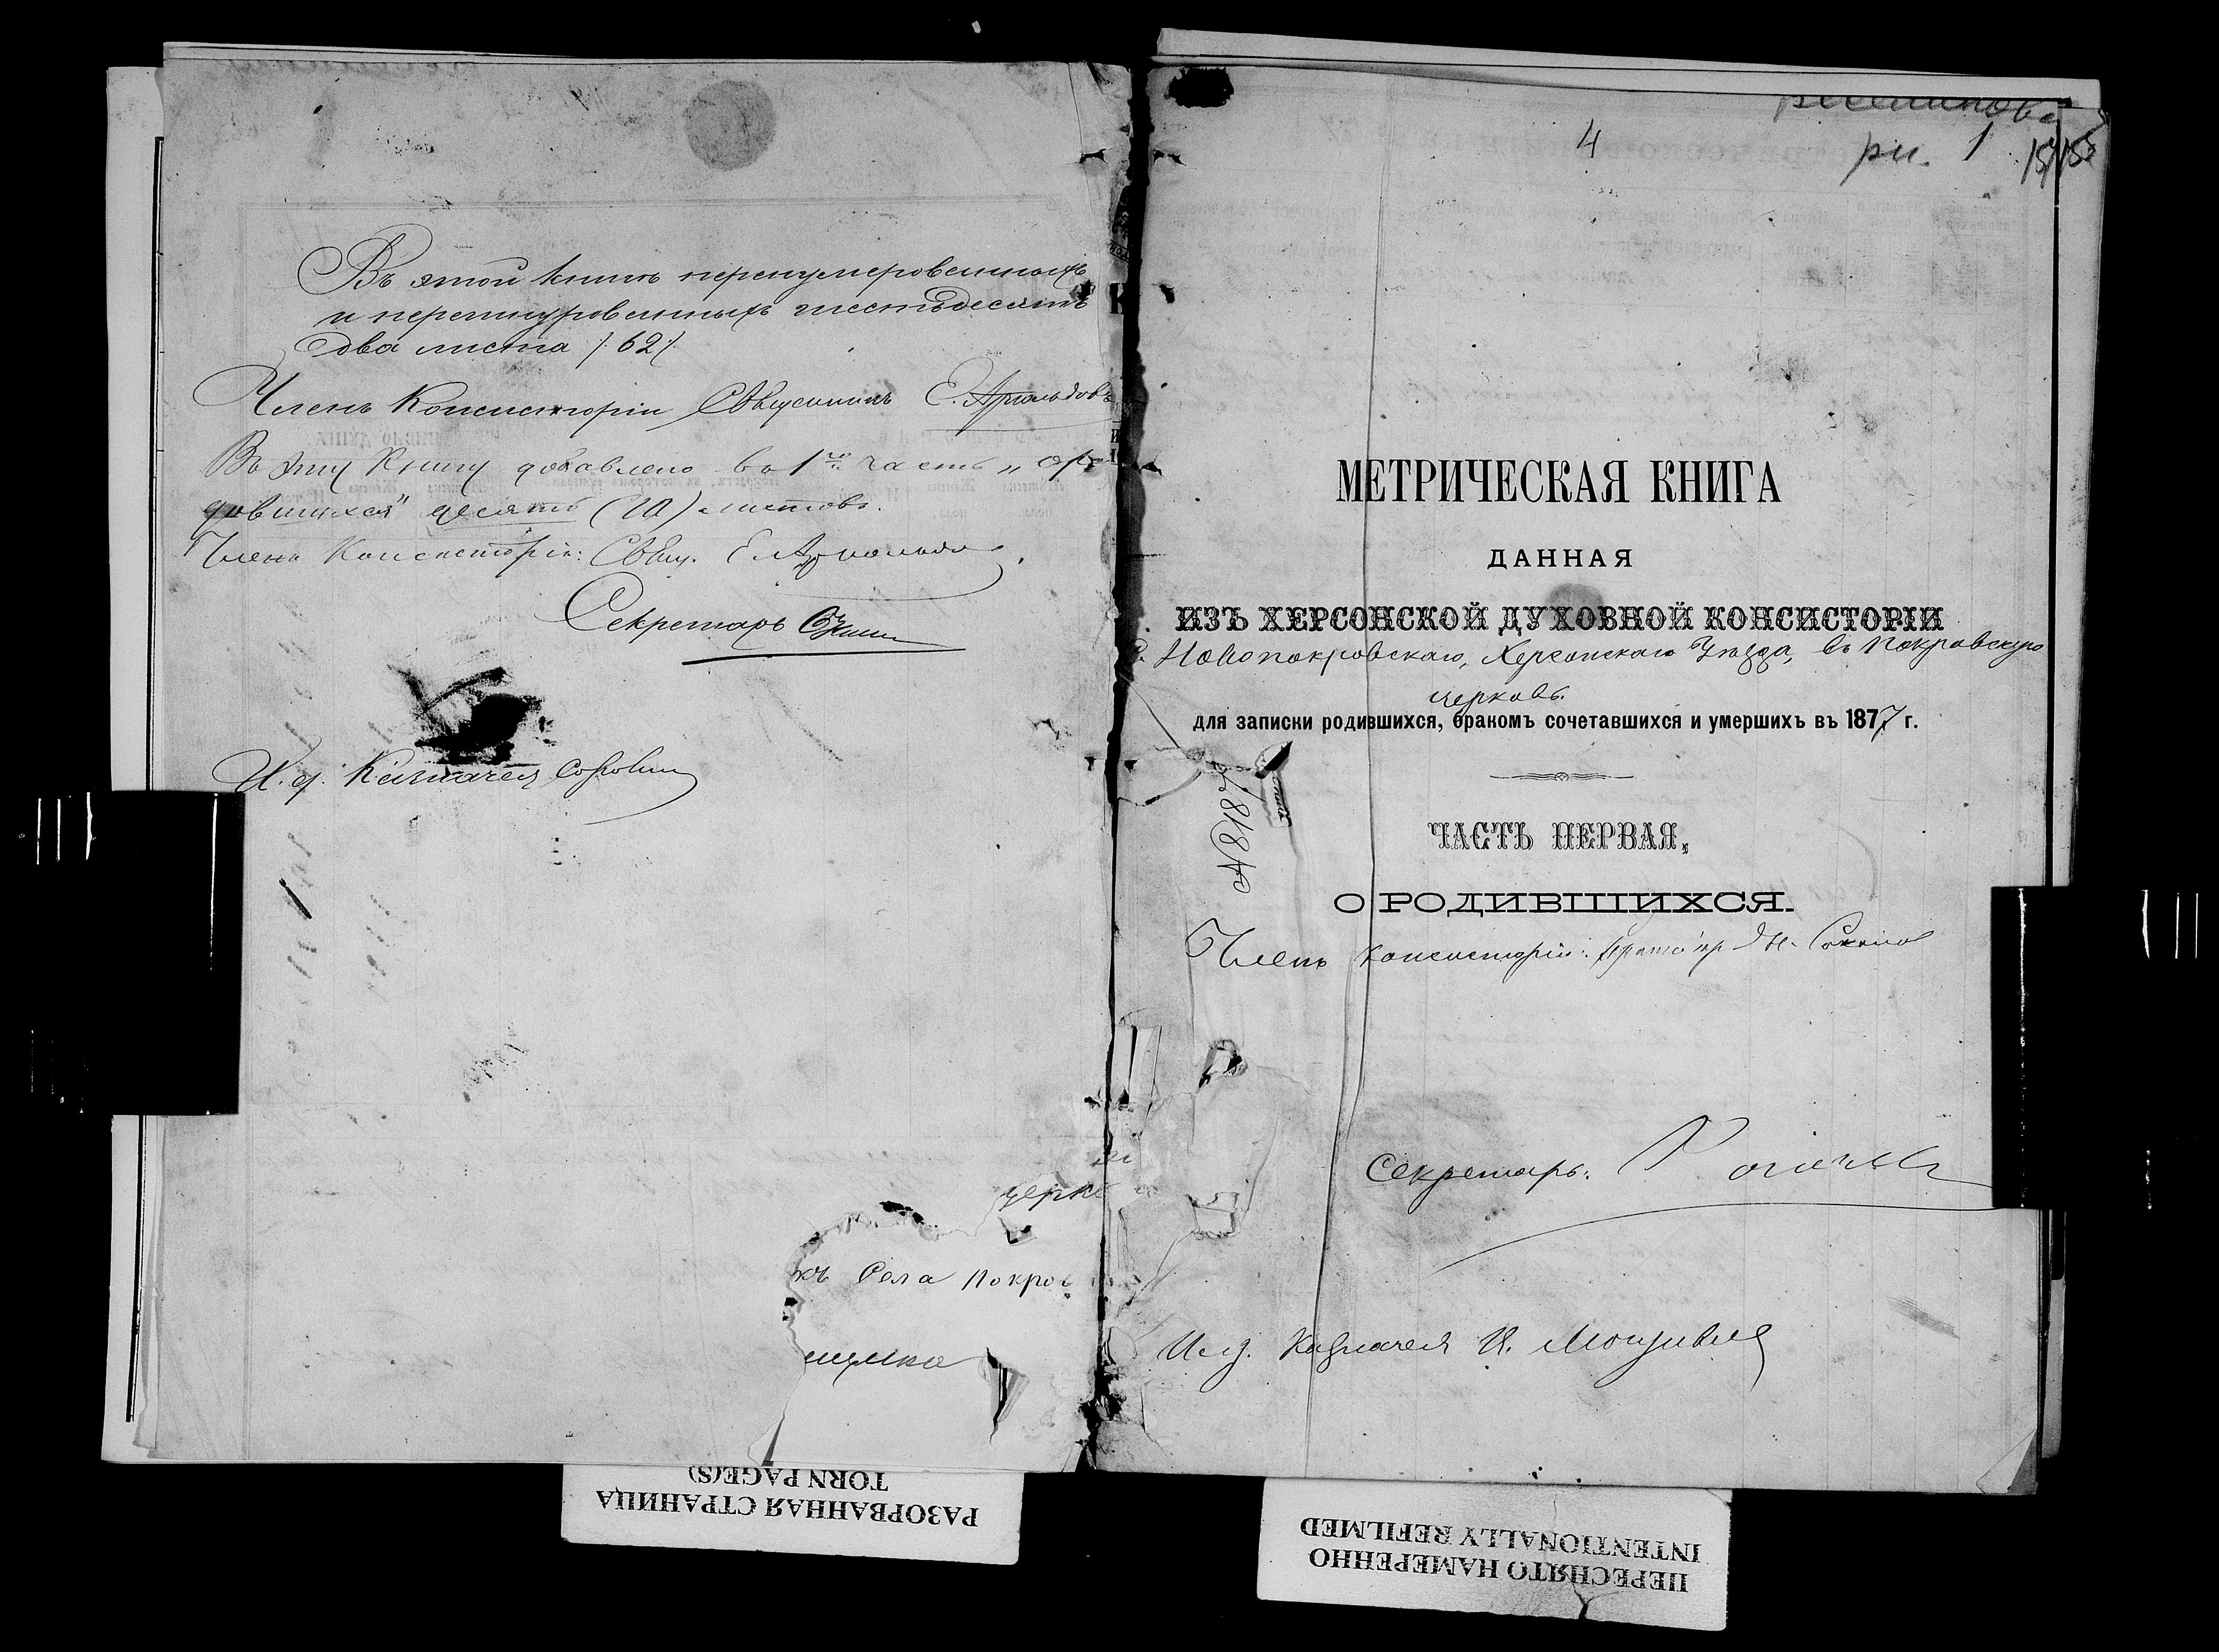 Въ этой книгѣ перенумерованныхъ
и перешнурованныхъ шестьдесятъ
два листа /:62:/
Членъ Консисторіи Священникъ Е. Арнольдовъ
Въ эту Книгу добавлено въ 1ую часть „о ро
дившихся" десять (10) листовъ.
Членъ Консисторіи: Свящ. Е. Арнольдовъ
Секретарь
И. д. Казначея
церк
къ Села Покров
4
ри. 1
МЕТРИЧЕСКАЯ КНИГА
ДАННАЯ
ИЗЪ ХЕРСОНСКОЙ ДУХОВНОЙ КОНСИСТОРІИ
с. Новопокровскаго, Херсонскаго Уѣзда, въ Покровскую
церковь.
для записки родившихся, бракомъ сочетавшихся и умершихъ въ 1877 г.
№ 8187
ЧАСТЬ ПЕРВАЯ,
О РОДИВШИХСЯ.
Членъ Консисторіи:
Секретарь:
И. д. Казначея И.
РАЗОРВАННАЯ СТРАНИЦА
TORN PAGE(S)
ПЕРЕСНЯТО НАМЕРЕННО
INTENTIONALLY REFILMED